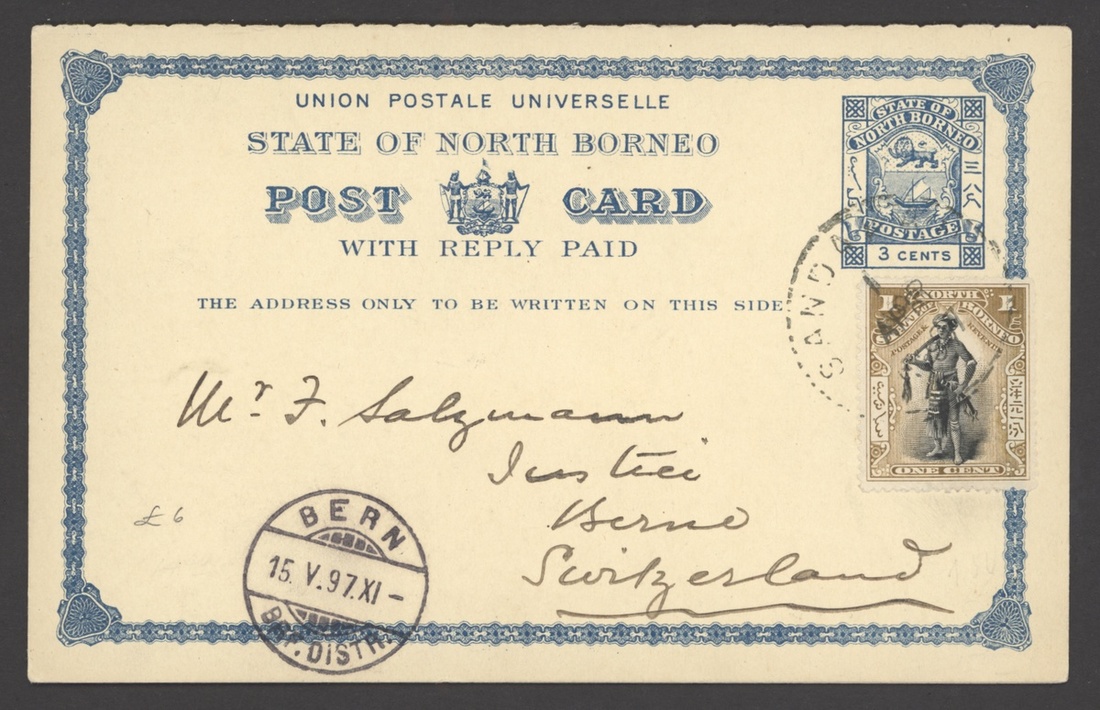 UNION POSTALE UNIVERSELLE
STATE OF NORTH BORNEO
POST CARD
WITH REPLY PAID
THE ADDRESS ONLY TO BE WRITTEN ON THIS SIDE
STATE OF
NORTH BORNEO
三
POSTAGE
3 CENTS
SANDA
NORTH
STATE OF BORNEO
POSTAGE & REVENUE
ONE CENT
Mr. F. Salzmann
Justice
Berne
Switzerland
£6
BERN
15. V. 97. XI –
BRF. DISTR.